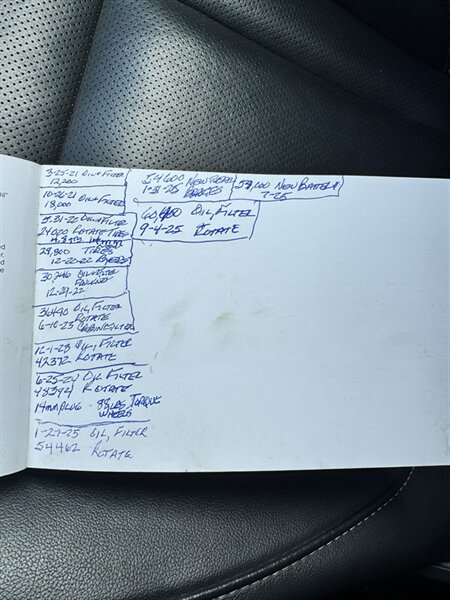 3-25-21 OIL+FILTER
12,200
10-26-21 OIL+FILTER
18,000
5-31-22 OIL+FILTER
24020 ROTATE TIRES
28,800 TIRES
12-20-22
30,246 OIL+FILTER
12-29-22
36490 OIL, FILTER
ROTATE
6-10-23 CABIN FILTER
12-1-23 OIL, FILTER
42372 ROTATE
6-25-24 OIL FILTER
48394 ROTATE
14mm PLUG - 98 LBS TORQUE
WHEELS
1-27-25 OIL, FILTER
54462 ROTATE
54600 NEW REAR
1-31-25 BRAKES
60,900 OIL, FILTER
9-4-25 ROTATE
NEW BATTERY
7-25